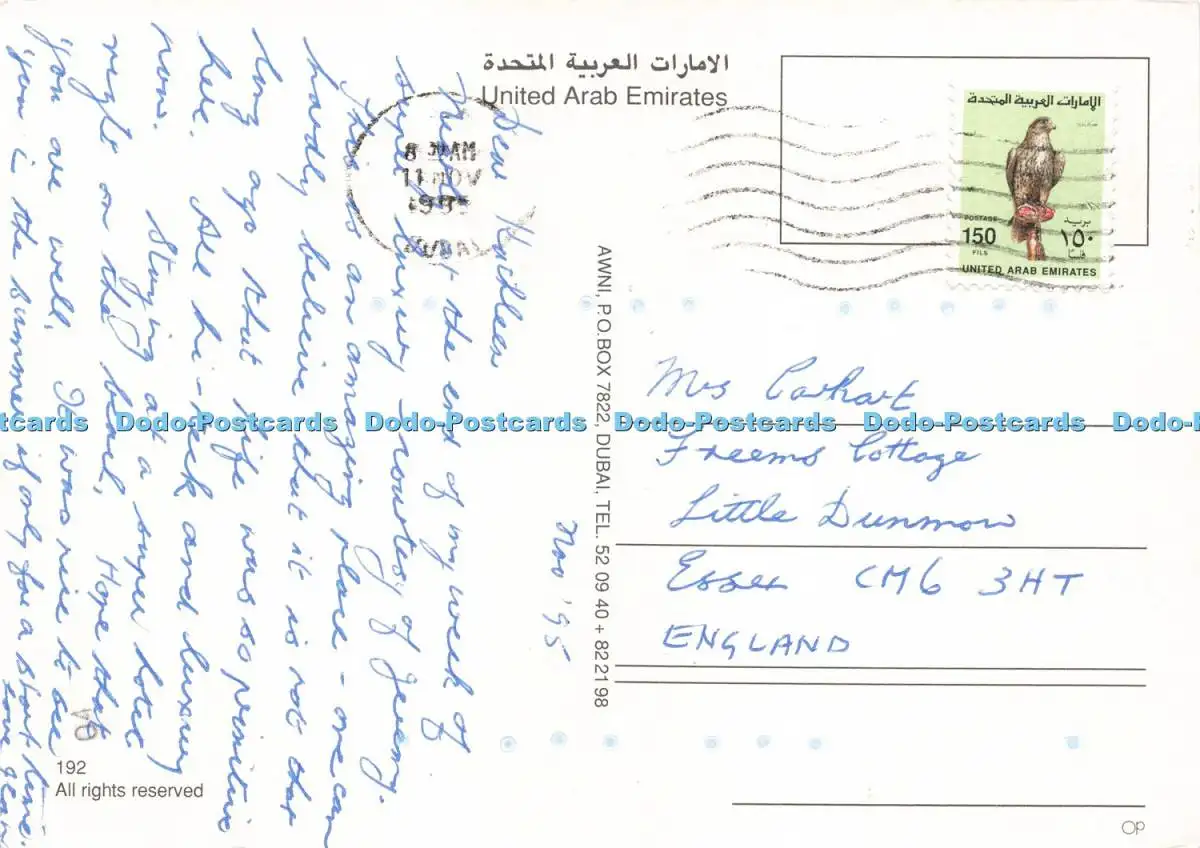 الامارات العربية المتحدة
United Arab Emirates
Dear Kathleen
Nearly at the end of my week of
super luxury - courtesy of Jenny.
This is an amazing place - one can
hardly believe that it is not that
long ago that life was so primitive
here. All hi-tech and luxury
now. Staying at a super hotel
right on the beach. Hope that
you are well. It was nice to see
you in the summer if only for a short time.
Love Jean
Nov '95
8 AM
11 NOV
DUBAI
الإمارات العربية المتحدة
POSTAGE
بريد
150
١٥٠
FILS
فلسا
UNITED ARAB EMIRATES
AWNI, P.O.BOX 7822, DUBAI, TEL. 52 09 40 + 82 21 98
Mrs Carhart
Freems Cottage
Little Dunmow
Essex CM6 3HT
ENGLAND
Dodo-Postcards Dodo-Postcards Dodo-Postcards Dodo-Postcards Dodo-Postcards
192
All rights reserved